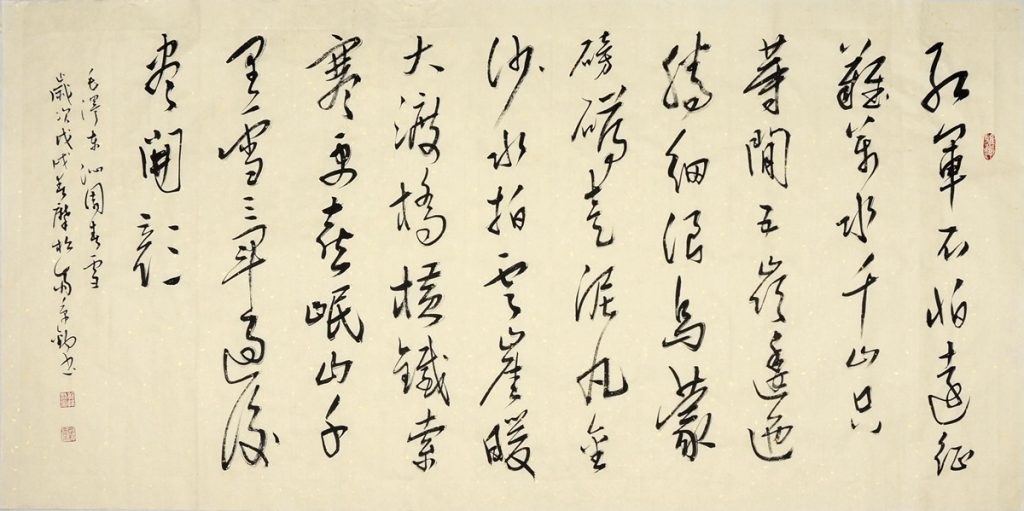 紅軍不怕遠征
難萬水千山只
等閒五嶺逶迤
騰細浪烏蒙
磅礴走泥丸金
沙水拍雲崖暖
大渡橋橫鐵索
寒更喜岷山千
里雪三軍過後
盡開顏
毛澤東 沁園春雪
歲次戊戌